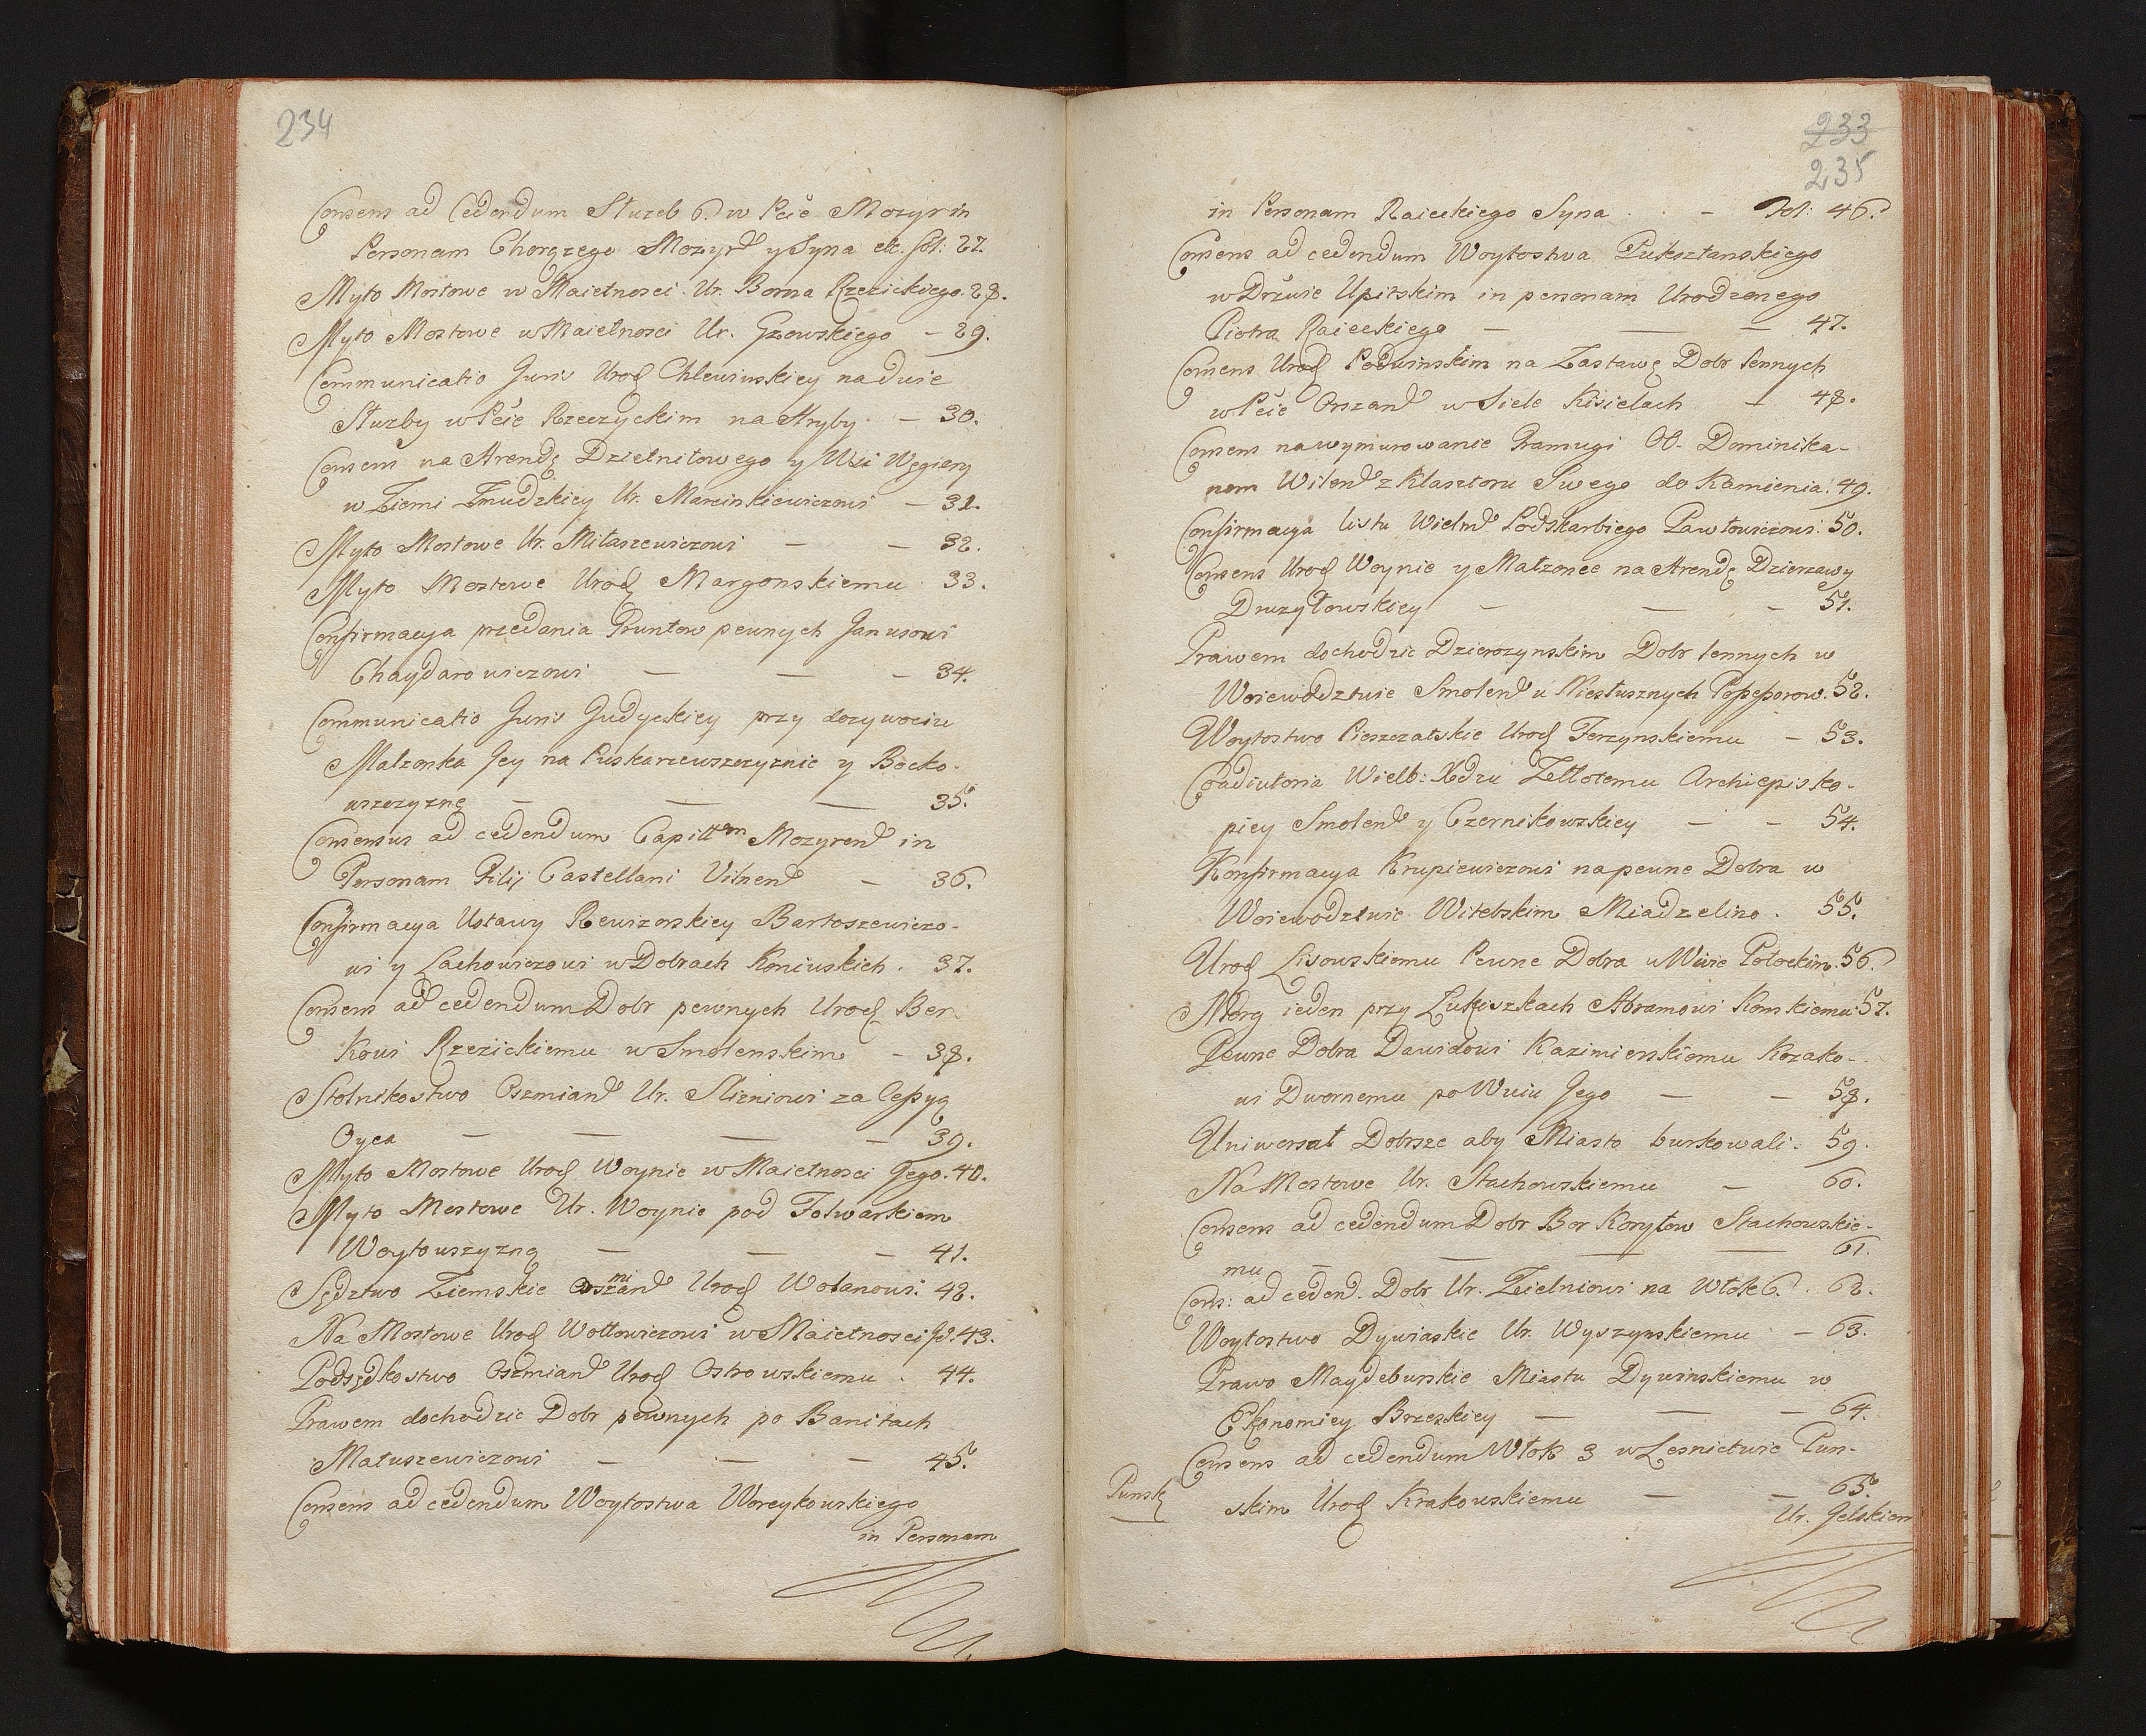 234
Consens ad Cedendum Służeb 6. w Pcie Mozyr in
Personam Chorążego Mozyr y Syna etc. fol: 27.
Myto Mostowe w Maietnosci Ur. Borna Rzezickiego. 28.
Myto Mostowe w Maietnosci Ur. Gzowskiego — 29.
Communicatio Juris Urod Chlewinskiey na dwie
Służby w Pcie Rzeczyckim na Hryby — 30.
Consens na Arendę Dzielnitowego y Wsi Węgiery
w Ziemi Zmudzkiey Ur. Marcinkiewiczowi — 31.
Myto Mostowe Ur. Miłaszewiczowi — — 32.
Myto Mostowe Urod Margonskiemu 33.
Confirmacya przedania Gruntow pewnych Janusowi
Chaydarowiczowi — — — 34.
Communicatio Juris Judyckiey przy dozywociu
Małzonka Jey na Puskarzewszczyznie y Bocko-
wszczyznę — — — 35.
Consensus ad cedendum Capittm Mozyrend in
Personam Filij Castellani Vilnen — 36.
Confirmacya Ustawy Rewizorskiey Bartoszewiczo-
wi y Lachowiczowi w Dobrach Koniuskich. 37.
Consens ad cedendum Dobr pewnych Urod Ber
kowi Rzezickiemu w Smolenskim — 38.
Stolnikostwo Oszmian Ur. Slizniowi za Cessyą
Oyca — — — — 39.
Myto Mostowe Urod Woynie w Maietnosci Jego. 40.
Myto Mostowe Ur. Woynie pod Folwarkiem
Woytowszyzną — — — 41.
Sędztwo Ziemskie Oszmian Urod Wolanowi. 42.
Na Mostowe Urod Wołłowiczowi w Maietnosci Je. 43.
Podsędkostwo Oszmian Urod Ostrowskiemu . 44.
Prawem dochodzic Dobr pewnych po Banitach
Matuszewiczowi — — — 45.
Consens ad cedendum Woytostwa Woreykowskiego
in Personam
233
235
in Personam Raieckiego Syna . . — Fol: 46.
Consens ad cedendum Woytostwa Puksztanskiego
w Dźwie Upitskim in personam Urodzonego
Piotra Raieckiego — — — 47.
Consens Urod Podwinskim na Zastawę Dobr lennych
w Pcie Orszand w Siele Kisielach — 48.
Consens na wymurowanie Framugi OO. Dominika-
nom Wilend z Klasztoru Swego do Kamienia. 49.
Confirmacya listu Wielmd Podskarbiego Pawłowiczowi. 50.
Consens Urod Woynie y Małzonce na Arendę Dzierzawy
Druzyłowskiey — — — 51.
Prawem dochodzic Dzierzynskim Dobr lennych w
Woiewodztwie Smolend u Niesłusznych Possessorow. 52.
Woytostwo Pieszczatskie Urod Terzynskiemu — 53.
Coadiutoria Wielb: Xdzu Zellotemu Archiepisko-
piey Smolend y Czernikowskiey — — 54.
Konfirmacya Krupiewiczowi na pewne Dobra w
Woiewodztwie Witebskim Miadzelino . 55.
Urod Lisowskiemu Pewne Dobra w Wwie Połockim. 56.
Morg ieden przy Łukiszkach Abramowi Konskiemu. 57.
Pewne Dobra Dawidowi Kazimierskiemu Kozako-
wi Dwornemu po Wuiu Jego — — 58.
Uniwersał Dobrsze aby Miasto burkowali. 59.
Na Mostowe Ur. Stachowskiemu — 60.
Consens ad cedendum Dobr Bor Korytow Stachowskie-
mu — — — — 61.
Cons: ad cedend. Dobr Ur. Zielniowi na Włok 6. . 62.
Woytostwo Dywinskie Ur. Wyszynskiemu — 63.
Prawo Maydeburskie Miastu Dywinskiemu w
Ekonomiey Brzeskiey — — — 64.
Consens ad cedendum Włok 3 w Lesnictwie Pun-
Punsk
skim Urod Krakowskiemu — — 65.
Ur. Gelskiem